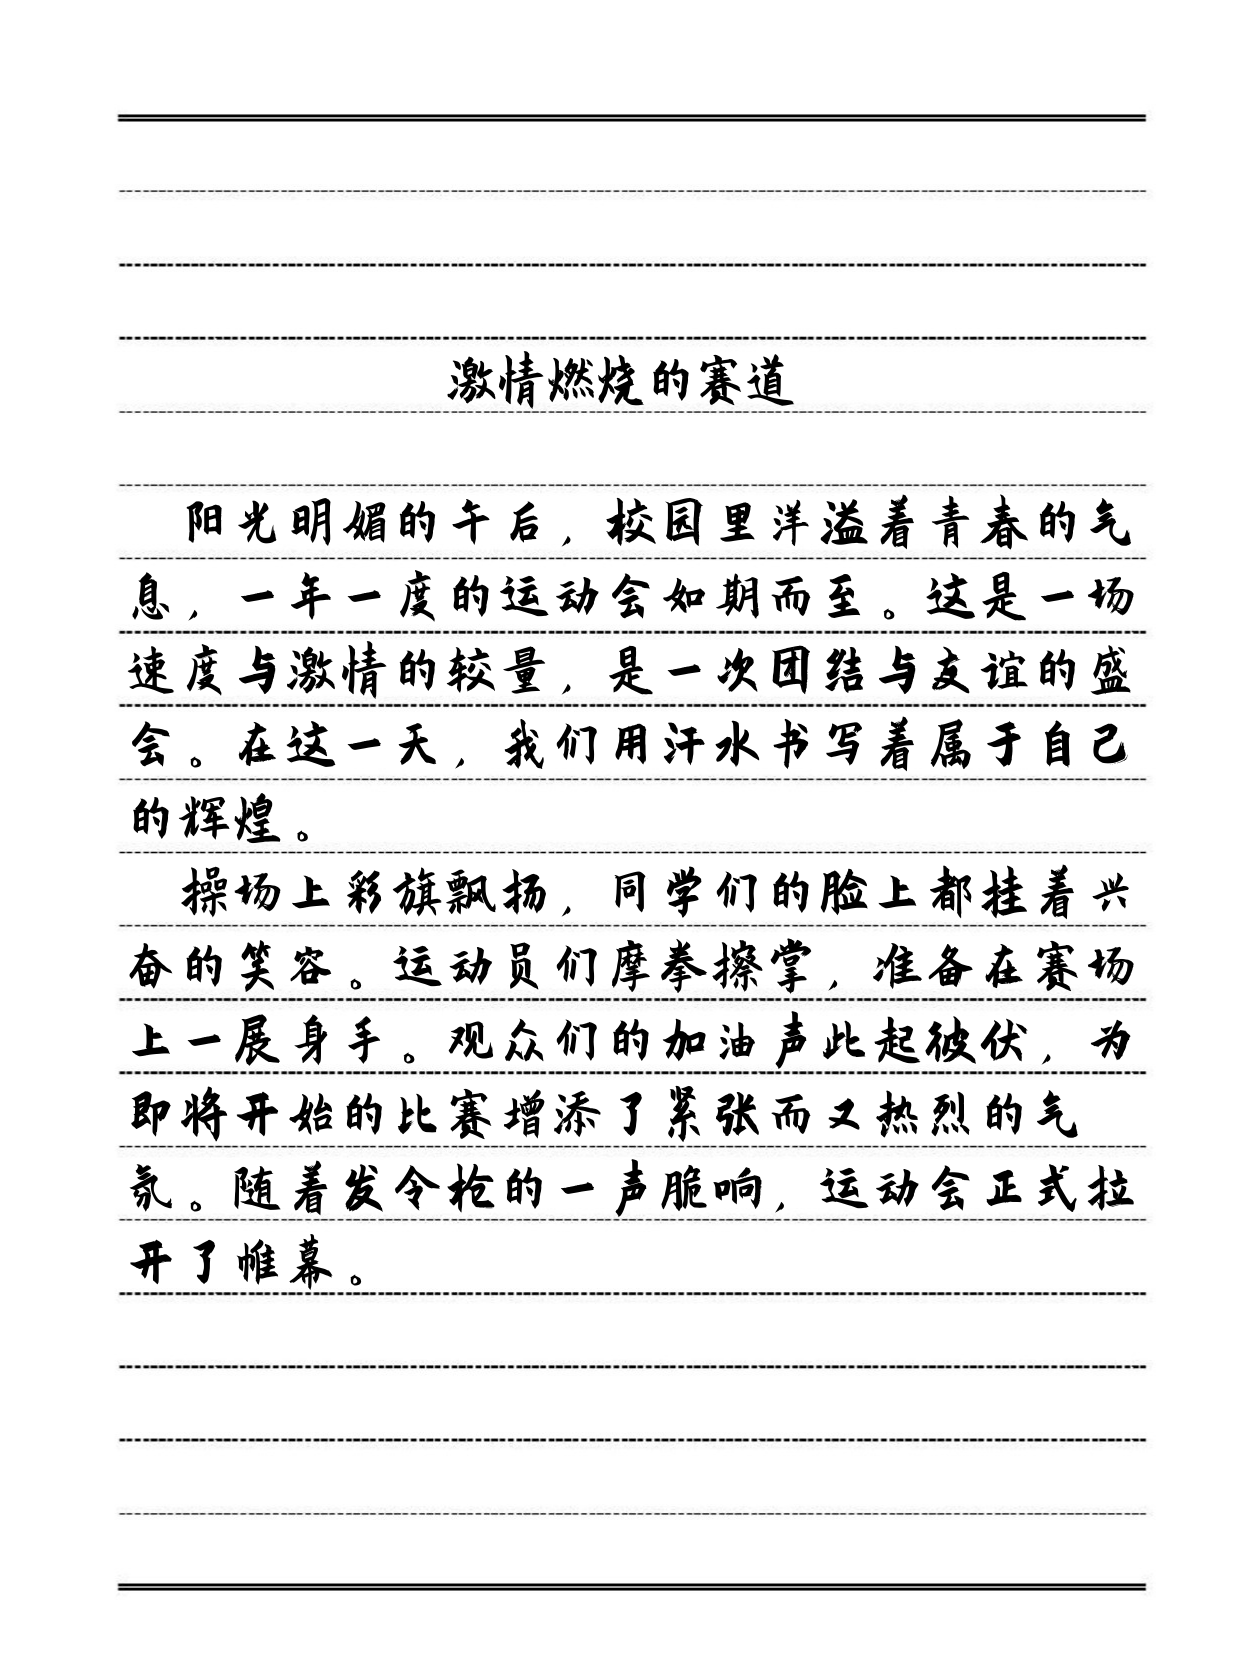 激情燃烧的赛道
阳光明媚的午后，校园里洋溢着青春的气
息，一年一度的运动会如期而至。这是一场
速度与激情的较量，是一次团结与友谊的盛
会。在这一天，我们用汗水书写着属于自己
的辉煌。
操场上彩旗飘扬，同学们的脸上都挂着兴
奋的笑容。运动员们摩拳擦掌，准备在赛场
上一展身手。观众们的加油声此起彼伏，为
即将开始的比赛增添了紧张而又热烈的气
氛。随着发令枪的一声脆响，运动会正式拉
开了帷幕。